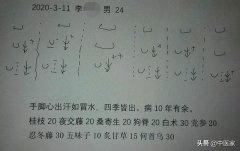 2020-3-11 李 男 24
手脚心出汗如冒水，四季皆出，病 10 年有余。
桂枝 20 夜交藤 20 桑寄生 20 狗脊 20 白术 30 党参 20
忍冬藤 30 五味子 10 炙甘草 15 何首乌 30
头条 @中医家